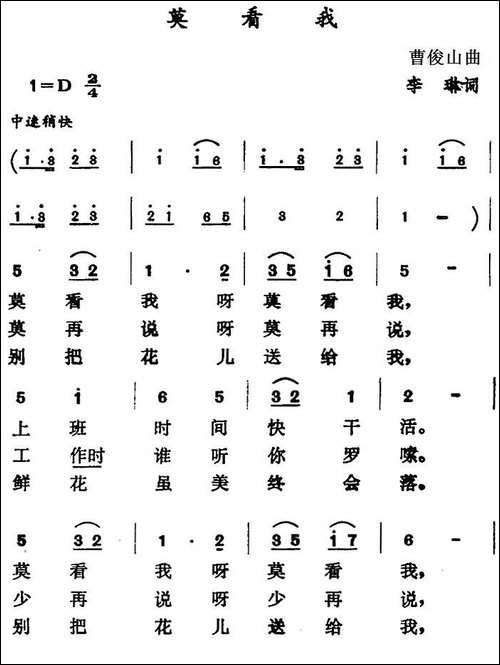 莫看我
曹俊山曲
1=D 2/4
李琳词
中速稍快
(i·3 2 3 | i i 6 | i·3 2 3 | i i 6 |
i·3 2 3 | 2 i 6 5 | 3 2 | 1 - ) |
5 3 2 | 1 · 2 | 3 5 i 6 | 5 - |
莫看我呀莫看我,
莫再说呀莫再说,
别把花儿送给我,
5 i | 6 5 | 3 2 1 | 2 - |
上班时间快干活。
工作时谁听你罗嗦。
鲜花虽美终会落。
5 3 2 | 1 · 2 | 3 5 i 7 | 6 - |
莫看我呀莫看我,
少再说呀少再说,
别把花儿送给我,